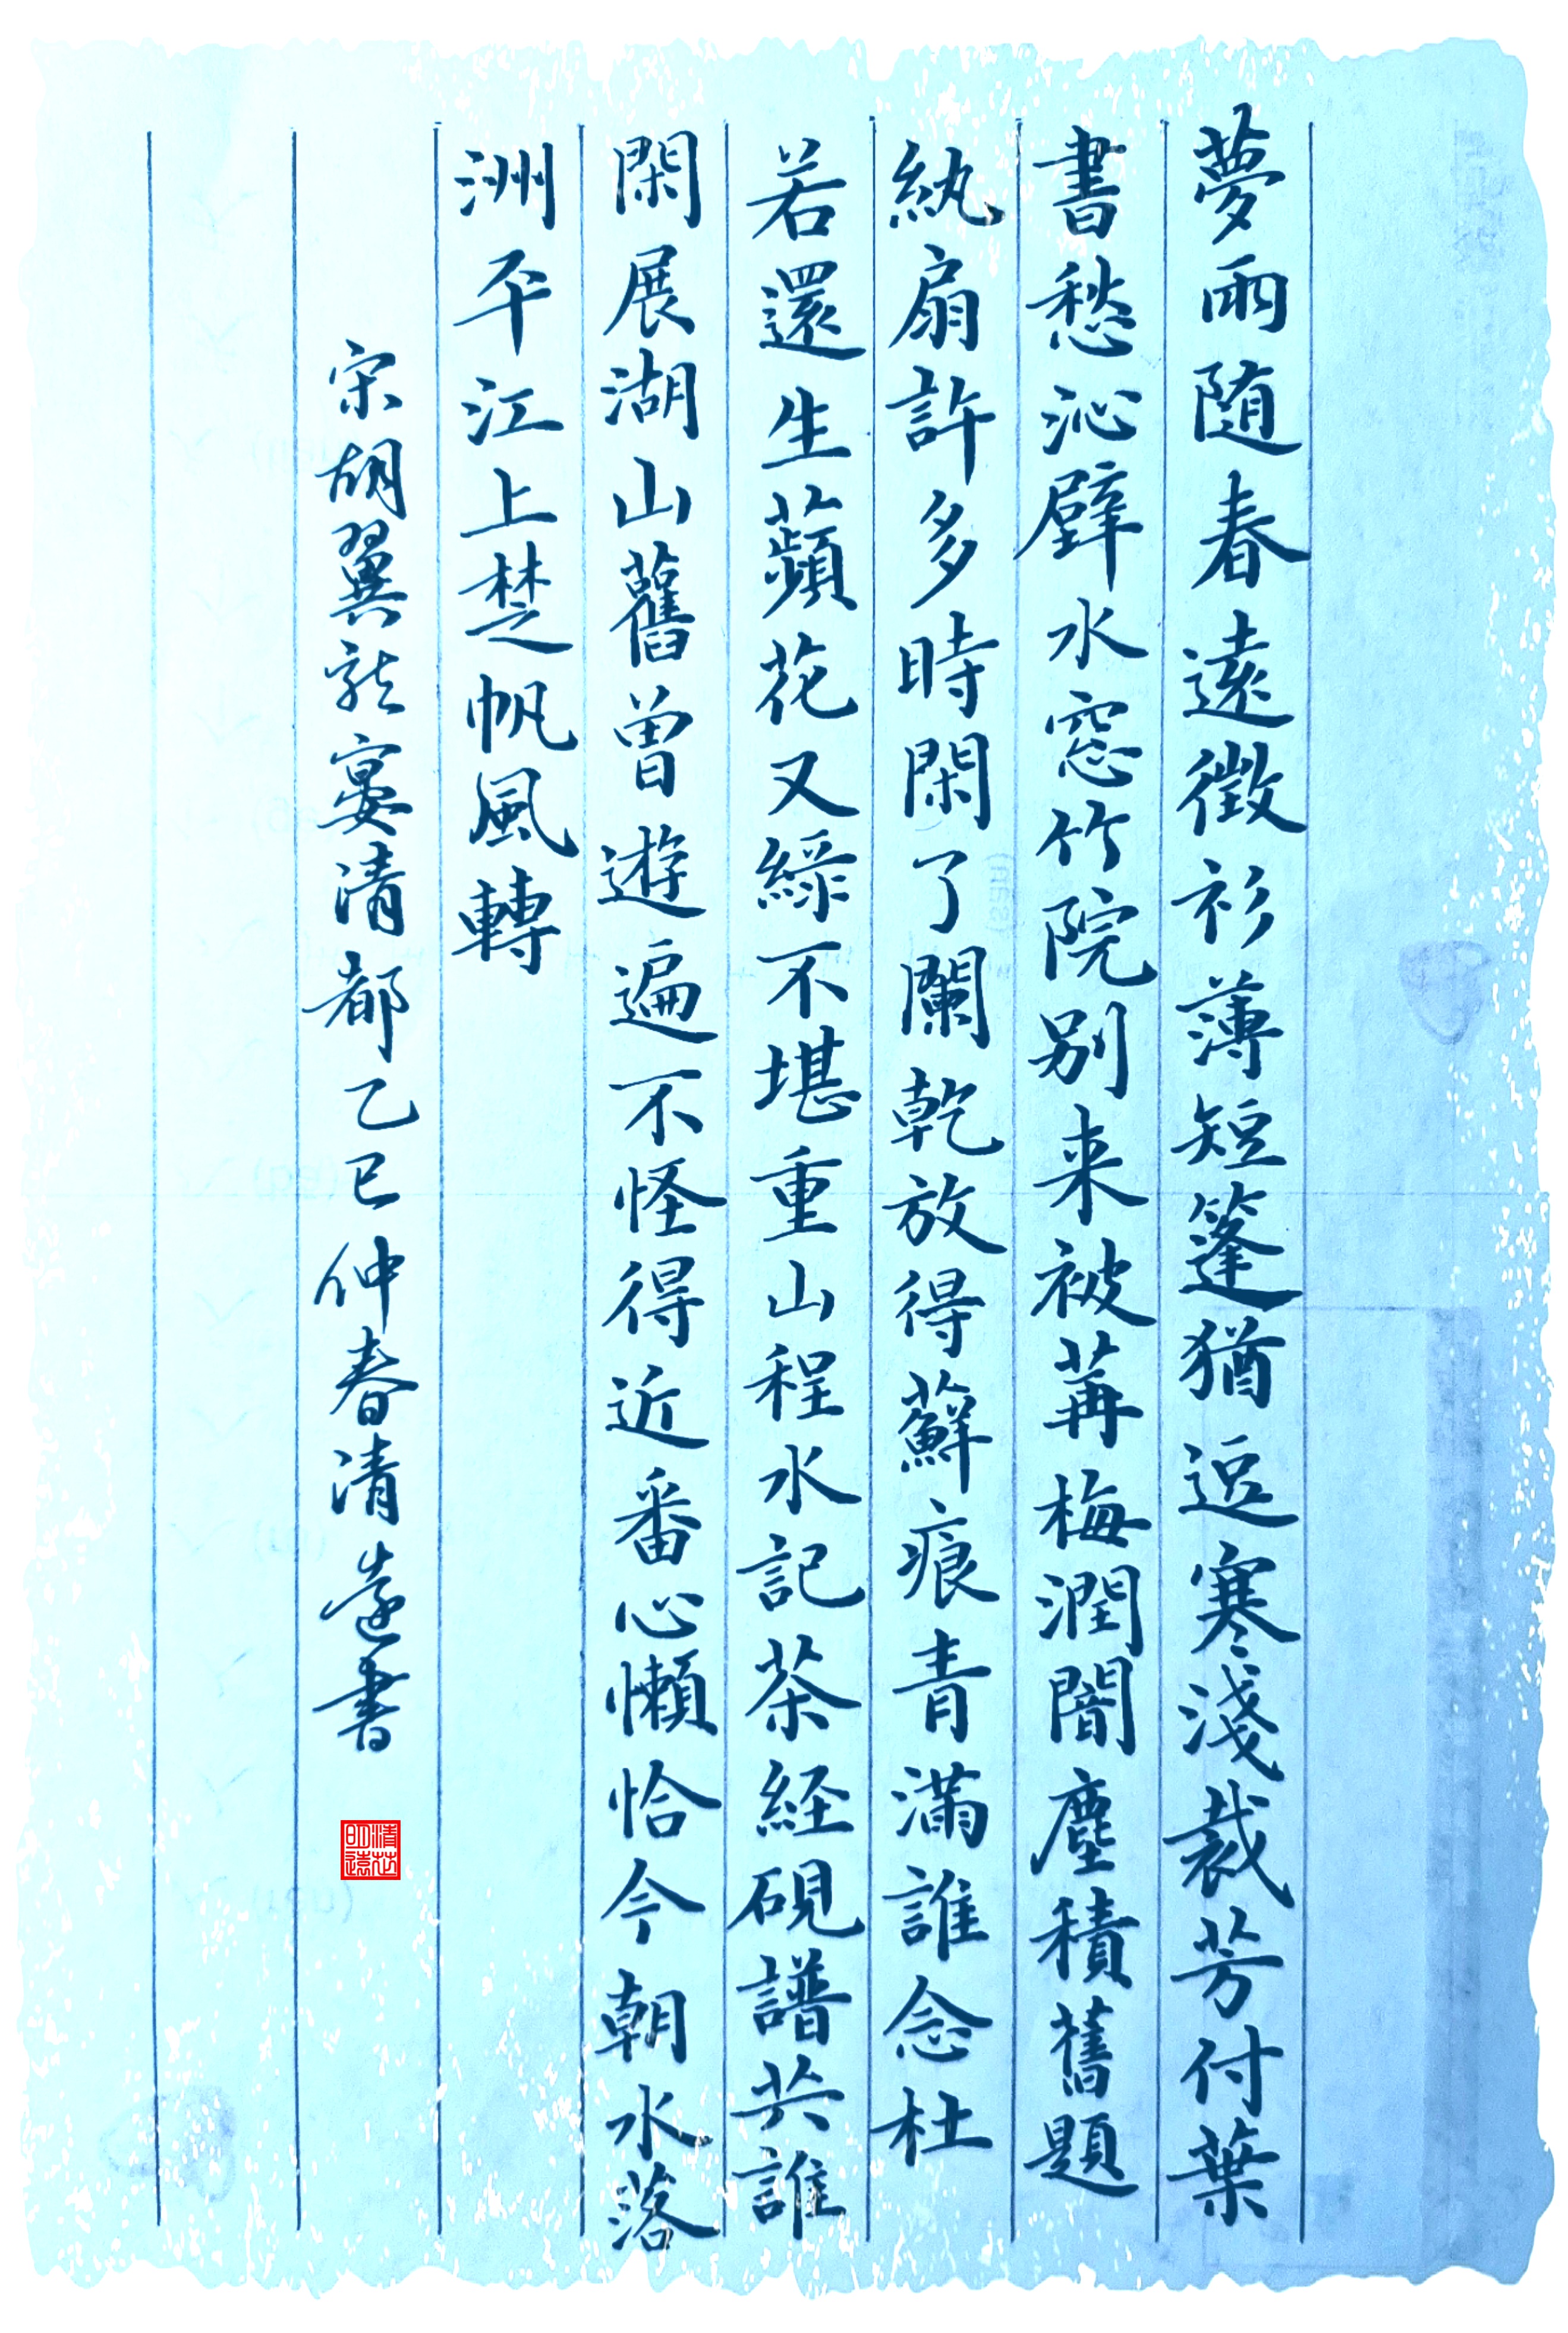 夢雨随春遠徵衫薄短篷猶逗寒淺裁芳付葉
書愁沁壁水窓竹院別来被苒梅潤闇塵積舊題
紈扇許多時閑了闌乾放得蘚痕青滿誰念杜
若還生蘋花又綠不堪重山程水記茶経硯譜共誰
閑展湖山舊曽遊遍不怪得近番心懶恰今朝水落
洲平江上楚帆風轉
宋胡翼龍宴清都乙巳仲春清遠書